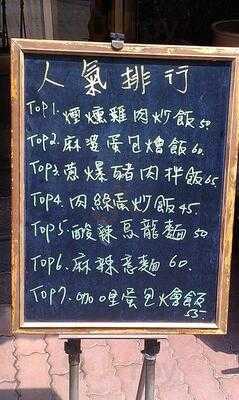 人氣排行
TOP1.煙燻雞肉炒飯50
TOP2.麻婆蛋包燴飯60
TOP3.蔥爆豬肉拌飯65
TOP4.肉絲蛋炒飯45
TOP5.酸辣烏龍麵50
TOP6.麻辣意麵60.
TOP7.咖哩蛋包燴飯
55